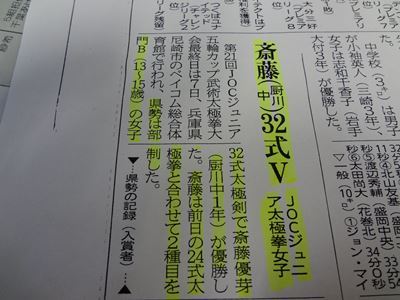 中学校(3㌔)は男子
が小袖英人(三崎3年)、
女子は志和千香子(岩手
大付3年)が優勝した。
秒⑥太田尚大(花巻北)34分0秒
▽一般(10㌔)①ジョン・マイ
斎藤(厨川中)32式V
JOCジュニ
ア太極拳女子
第21回JOCジュニア
五輪カップ武術太極拳大
会最終日は7日、兵庫県
尼崎市のベイコム総合体
育館で行われ、県勢は部
門B(13~15歳)の女子
32式太極剣で斎藤優芽
(厨川中1年)が優勝し
た。斎藤は前日の24式太
極拳と合わせて2種目を
制した。
▼…県勢の記録(入賞者)…